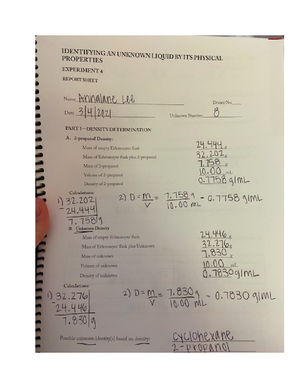 IDENTIFYING AN UNKNOWN LIQUID BY ITS PHYSICAL
PROPERTIES
EXPERIMENT 4
REPORT SHEET
Name Annalane Lee
Date 3/4/2021 Unknown Number 8
PART I – DENSITY DETERMINATION
A. 2-propanol Density:
Mass of empty Erlenmeyer flask 24.444 g
Mass of Erlenmeyer flask plus 2-propanol 32.202 g
Mass of 2-propanol 7.758 g
Volume of 2-propanol 10.00 mL
Density of 2-propanol 0.7758 g/mL
Calculations:
1) 32.202 2) D = m/v = 7.758 g/10.00 mL = 0.7758 g/mL
- 24.444
7.758 g
B. Unknown Density
Mass of empty Erlenmeyer flask 24.446 g
Mass of Erlenmeyer flask plus Unknown 32.276 g
Mass of unknown 7.830 g
Volume of unknown 10.00 mL
Density of unknown 0.7830 g/mL
Calculations:
1) 32.276 2) D = m/v = 7.830 g/10.00 mL = 0.7830 g/mL
- 24.446
7.830 g
Possible identity(ies) based on density: cyclohexane
2-propanol